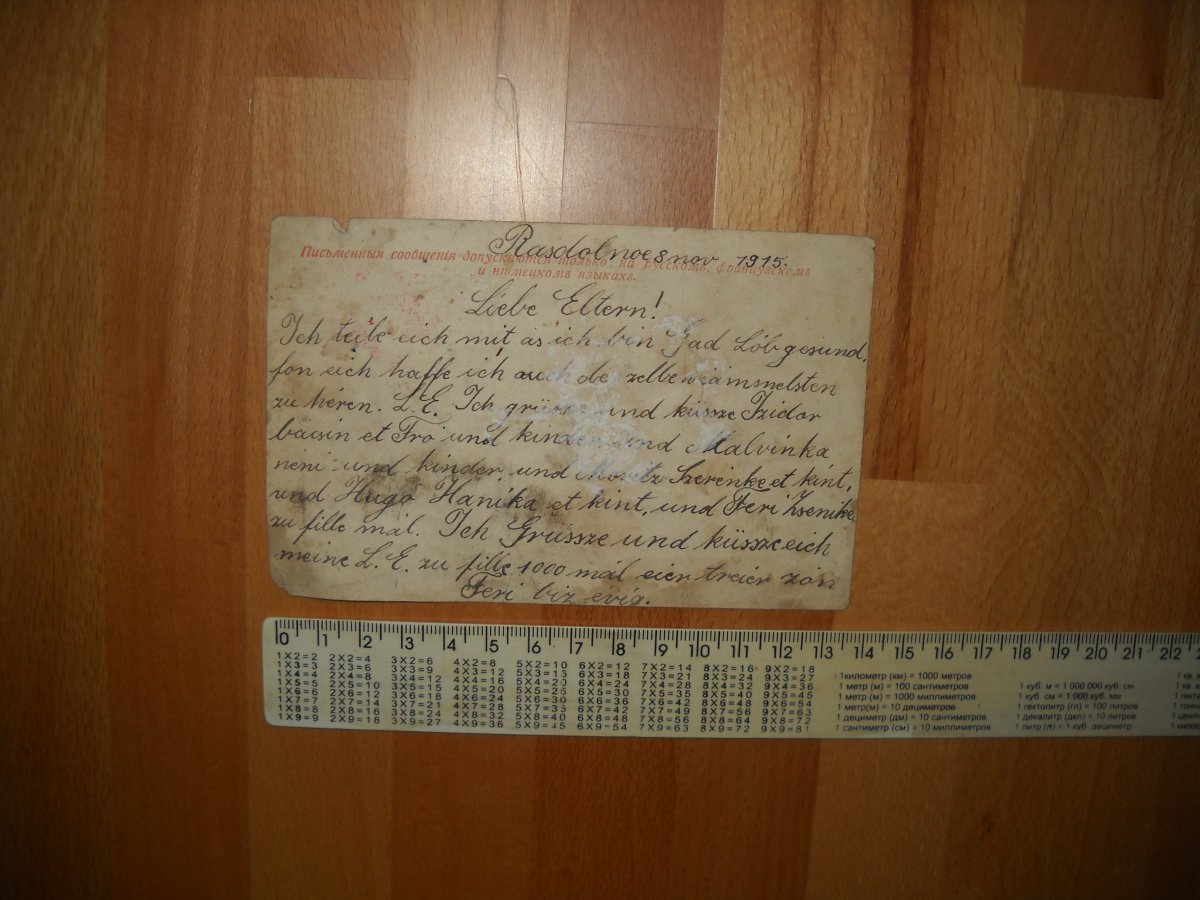 Rasdolnoe 8 nov 1915.
Письменныя сообщенія допускаются только на русскомъ, французскомъ
и нѣмецкомъ языкахъ.
Liebe Eltern!
Ich teile eich mit as ich bin Gad Lób gesund.
fon eich haffe ich auch
zu héren. L. E. Ich grüssze und küssze Izidor
bácsin et Fró und kinder und Malvinka
néni und kinder und Moritz Szerinke et kint,
und Hugó Hanika et kint, und Feri Zsenike
zu fille mál. Ich Grüssze und küssze eich
meine L. E. zu fille 1000 mál eier treier zón
Feri biz evig.
0 1 2 3 4 5 6 7 8 9 10 11 12 13 14 15 16 17 18 19 20 21 22
1X2=2 2X2=4 3X2=6 4X2=8 5X2=10 6X2=12 7X2=14 8X2=16 9X2=18
1X3=3 2X3=6 3X3=9 4X3=12 5X3=15 6X3=18 7X3=21 8X3=24 9X3=27
1X4=4 2X4=8 3X4=12 4X4=16 5X4=20 6X4=24 7X4=28 8X4=32 9X4=36
1X5=5 2X5=10 3X5=15 4X5=20 5X5=25 6X5=30 7X5=35 8X5=40 9X5=45
1X6=6 2X6=12 3X6=18 4X6=24 5X6=30 6X6=36 7X6=42 8X6=48 9X6=54
1X7=7 2X7=14 3X7=21 4X7=28 5X7=35 6X7=42 7X7=49 8X7=56 9X7=63
1X8=8 2X8=16 3X8=24 4X8=32 5X8=40 6X8=48 7X8=56 8X8=64 9X8=72
1X9=9 2X9=18 3X9=27 4X9=36 5X9=45 6X9=54 7X9=63 8X9=72 9X9=81
1километр (км) = 1000 метров
1 метр (м) = 100 сантиметров
1 метр (м) = 1000 миллиметров
1 метр(м) = 10 дециметров
1 дециметр (дм) = 10 сантиметров
1 сантиметр (см) = 10 миллиметров
1 куб м = 1 000 000 куб см
1 куб. см = 1 000 куб мм
1 гектолитр (гл) = 100 литров
1 декалитр (дкл) = 10 литров
1 литр (л) = 1 куб. дециметр